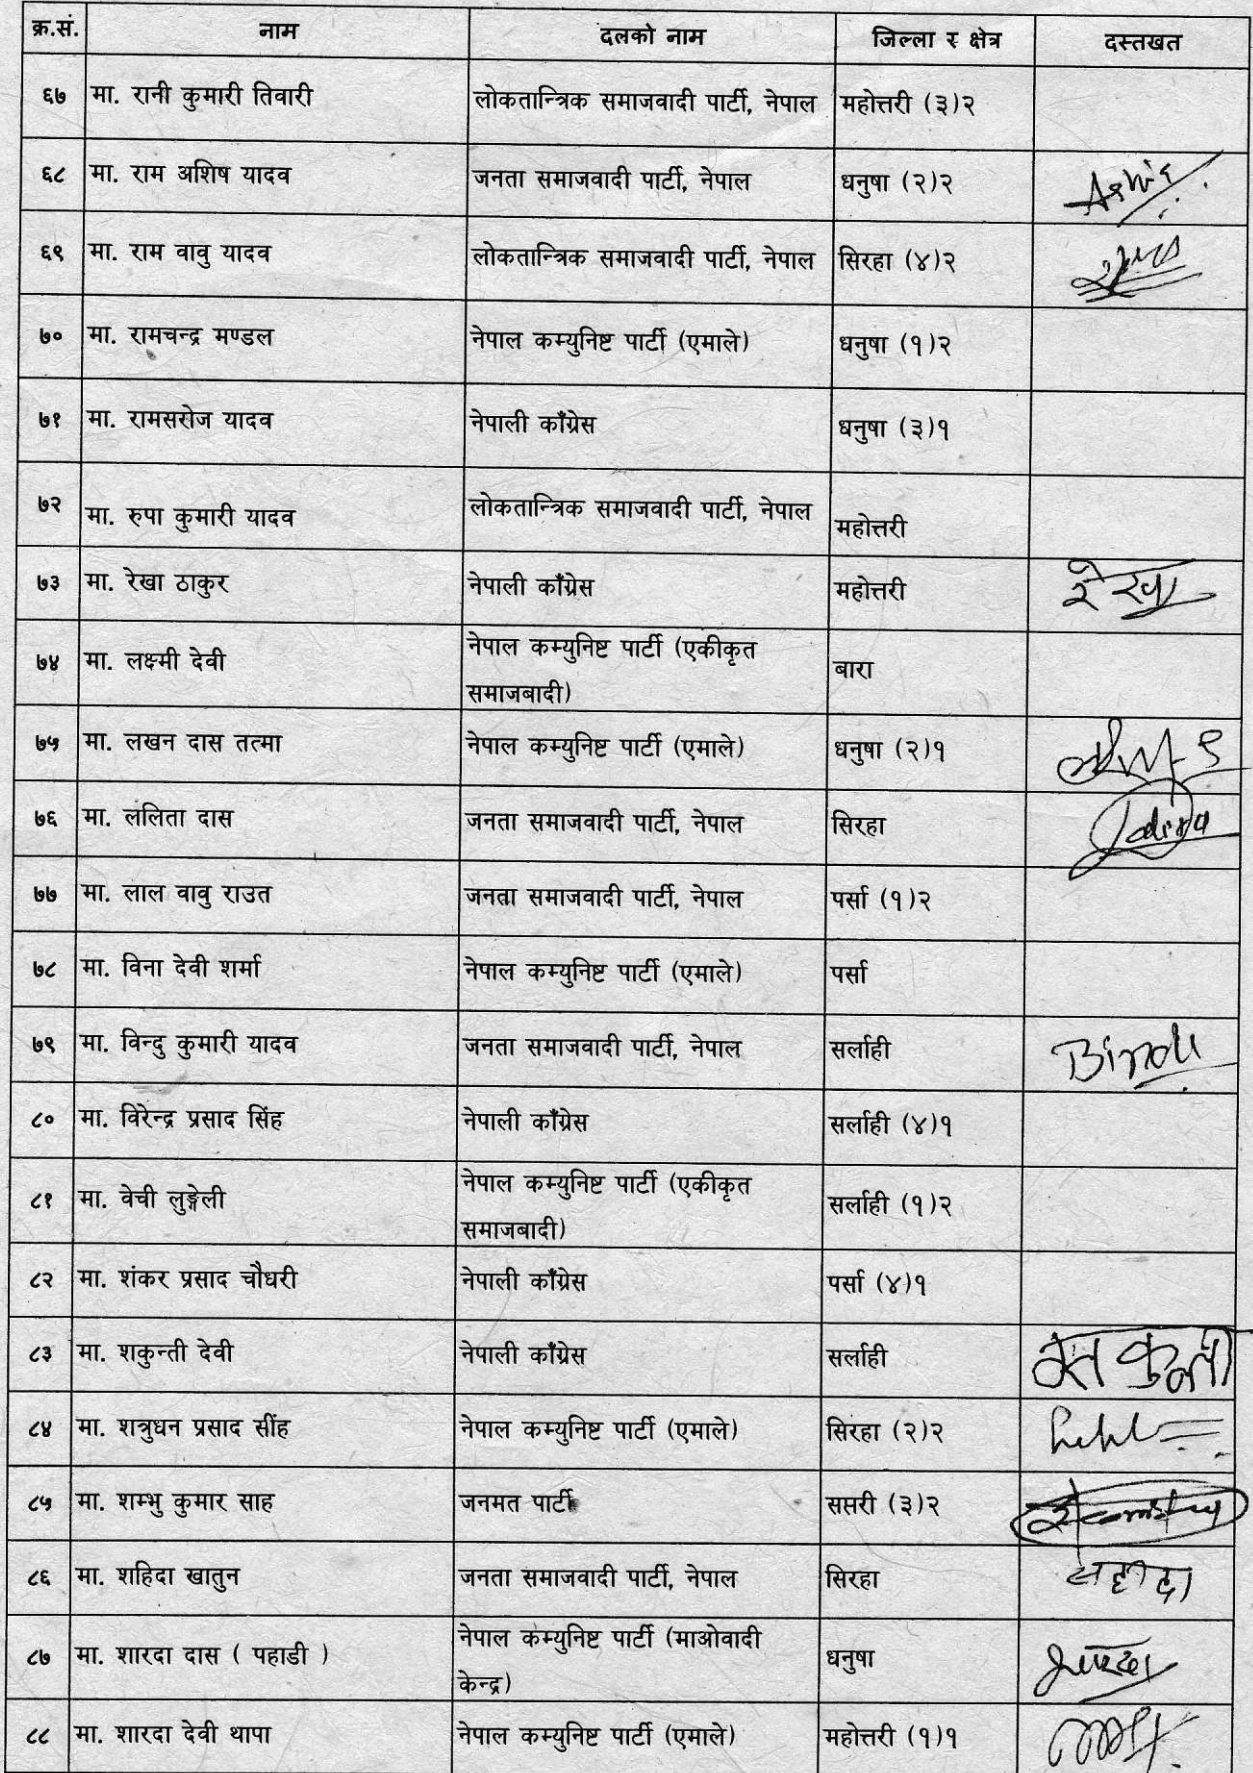 क्र.सं. नाम दलको नाम जिल्ला र क्षेत्र दस्तखत
६७ मा. रानी कुमारी तिवारी लोकतान्त्रिक समाजवादी पार्टी, नेपाल महोत्तरी (३)२
६८ मा. राम अशिष यादव जनता समाजवादी पार्टी, नेपाल धनुषा (२)२
६९ मा. राम वावु यादव लोकतान्त्रिक समाजवादी पार्टी, नेपाल सिरहा (४)२
७० मा. रामचन्द्र मण्डल नेपाल कम्युनिष्ट पार्टी (एमाले) धनुषा (१)२
७१ मा. रामसरोज यादव नेपाली काँग्रेस धनुषा (३)१
७२ मा. रुपा कुमारी यादव लोकतान्त्रिक समाजवादी पार्टी, नेपाल महोत्तरी
७३ मा. रेखा ठाकुर नेपाली काँग्रेस महोत्तरी रेखा
७४ मा. लक्ष्मी देवी नेपाल कम्युनिष्ट पार्टी (एकीकृत
समाजबादी) बारा
७५ मा. लखन दास तत्मा नेपाल कम्युनिष्ट पार्टी (एमाले) धनुषा (२)१
७६ मा. ललिता दास जनता समाजवादी पार्टी, नेपाल सिरहा
७७ मा. लाल वावु राउत जनता समाजवादी पार्टी, नेपाल पर्सा (१)२
७८ मा. विना देवी शर्मा नेपाल कम्युनिष्ट पार्टी (एमाले) पर्सा
७९ मा. विन्दु कुमारी यादव जनता समाजवादी पार्टी, नेपाल सर्लाही Bindu
८० मा. विरेन्द्र प्रसाद सिंह नेपाली काँग्रेस सर्लाही (४)१
८१ मा. वेची लुङ्गेली नेपाल कम्युनिष्ट पार्टी (एकीकृत
समाजबादी) सर्लाही (१)२
८२ मा. शंकर प्रसाद चौधरी नेपाली काँग्रेस पर्सा (४)१
८३ मा. शकुन्ती देवी नेपाली काँग्रेस सर्लाही
८४ मा. शत्रुधन प्रसाद सींह नेपाल कम्युनिष्ट पार्टी (एमाले) सिरहा (२)२
८५ मा. शम्भु कुमार साह जनमत पार्टी सप्तरी (३)२
८६ मा. शहिदा खातुन जनता समाजवादी पार्टी, नेपाल सिरहा
८७ मा. शारदा दास ( पहाडी ) नेपाल कम्युनिष्ट पार्टी (माओवादी
केन्द्र) धनुषा
८८ मा. शारदा देवी थापा नेपाल कम्युनिष्ट पार्टी (एमाले) महोत्तरी (१)१